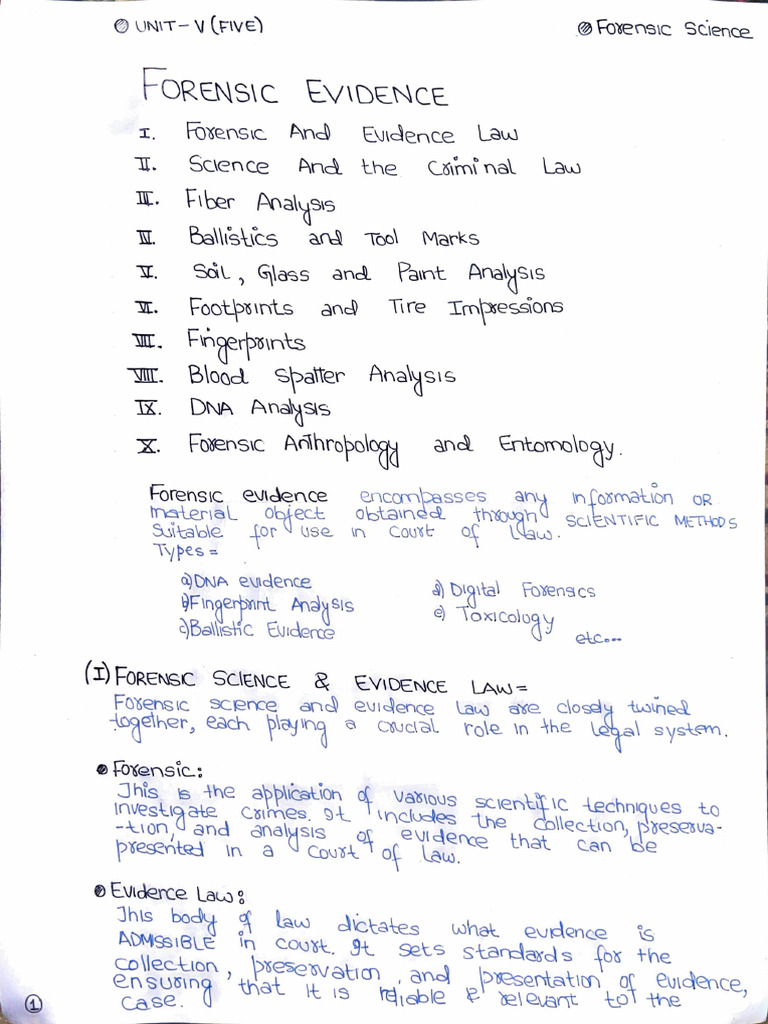 UNIT-V (FIVE)
Forensic Science
FORENSIC EVIDENCE
I. Forensic And Evidence Law
II. Science And the Criminal Law
III. Fiber Analysis
IIII. Ballistics and Tool Marks
V. Soil, Glass and Paint Analysis
VI. Footprints and Tire Impressions
VII. Fingerprints
VIII. Blood Spatter Analysis
IX. DNA Analysis
X. Forensic Anthropology and Entomology.
Forensic evidence encompasses any information OR
material object obtained through SCIENTIFIC METHODS
suitable for use in court of law.
Types =
a) DNA evidence
b) Fingerprint Analysis
c) Ballistic Evidence
d) Digital Forensics
e) Toxicology
etc...
(I) FORENSIC SCIENCE & EVIDENCE LAW=
Forensic science and evidence law are closely twined
together, each playing a crucial role in the legal system.
Forensic:
This is the application of various scientific techniques to
investigate crimes. It includes the collection, preserva-
-tion, and analysis of evidence that can be
presented in a court of law.
Evidence Law:
This body of law dictates what evidence is
ADMISSIBLE in court. It sets standards for the
collection, preservation, and presentation of evidence,
ensuring that it is reliable & relevant to the
case.
1